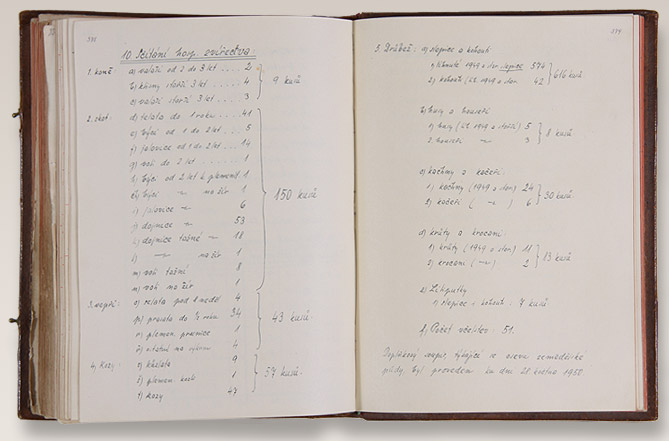 10. Sčítání hosp. zvířectva:
1. koně a) valaši od 2 do 3 let .... 2
b) klisny starší 3 let .... 4
c) valaši starší 3 let .... 3
9 kusů
2. skot: d) telata do 1 roku .... 41
e) býci od 1 do 2 let .... 5
f) jalovice od 1 do 2 let .... 14
g) voli do 2 let .... 1
h) býci od 2 let k plemeni 1
ch) býci na žír 1
i) jalovice 6
j) dojnice 53
k) dojnice tažné 18
l) na žír 1
m) voli tažní 8
n) voli na žír 1
150 kusů
3. vepři: o) selata pod 1 měsíc 4
p) prasata do ½ roku 34
r) plemen. prasnice 1
4
43 kusů
4. kozy: s) kůzlata 9
š) plemen. kozli 1
t) kozy 47
57 kusů
5. Drůbež: a) slepice a kohouti:
1) líhnuté 1949 a star. slepice 574
2) kohouti (lí. 1949 a star. 42
616 kusů
b) husy a houseři
1) husy (lí. 1949 a starší) 5
2. houseři 3
8 kusů
c) kachny a kačeři:
1) kachny (1949 a star.) 24
2) kačeři 6
30 kusů
d) krůty a krocani:
1) krůty (1949 a star.) 11
2) krocani 2
13 kusů
e) Liliputky
1) slepice a kohouti: 7 kusů
f) Počet včelstev: 51.
Doplňkový soupis, týkající se osevu zemědělské
půdy, byl proveden ku dni 21. května 1950